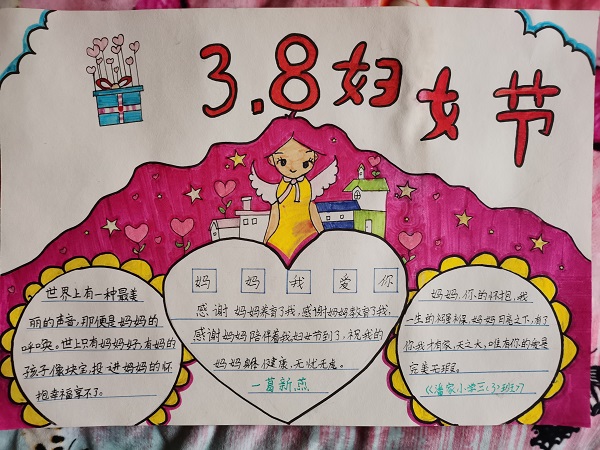 3.8妇女节
世界上有一种最美
丽的声音,那便是妈妈的
呼唤。世上只有妈妈好,有妈的
孩子像块宝,投进妈妈的怀
抱幸福享不了。
妈 妈 我 爱 你
感谢妈妈养育了我,感谢妈妈教育了我,
感谢妈妈陪伴着我妇女节到了,祝我的
妈妈健康、无忧无虑。
一葛新燕
妈妈,你的怀抱,我
一生的襁褓,妈妈月是之下,有了
你我才有家,天之大,唯有你的爱是
完美无瑕。
《潘家小学三(3)班》